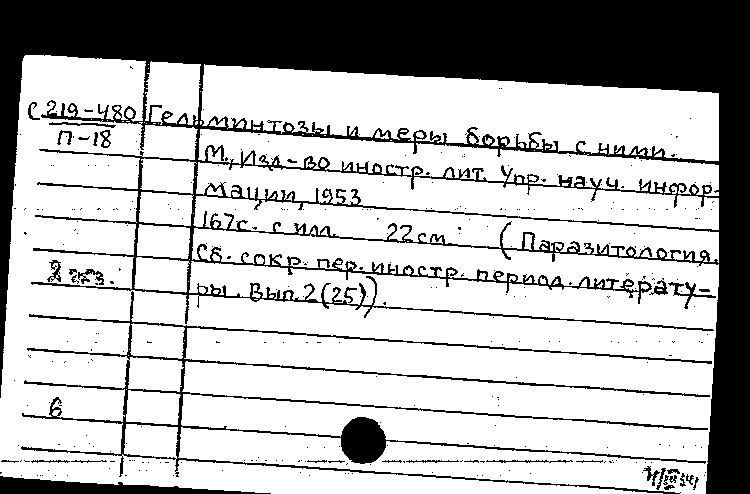 С 219-480 Гельминтозы и меры борьбы с ними.
П-18
М., Изд-во иностр. лит. Упр. науч. инфор-
мации, 1953
167с. с илл. 22см. (Паразитология.
Сб. сокр. пер. иностр. период. литерату-
2 экз.
ры. Вып. 2(25)).
6